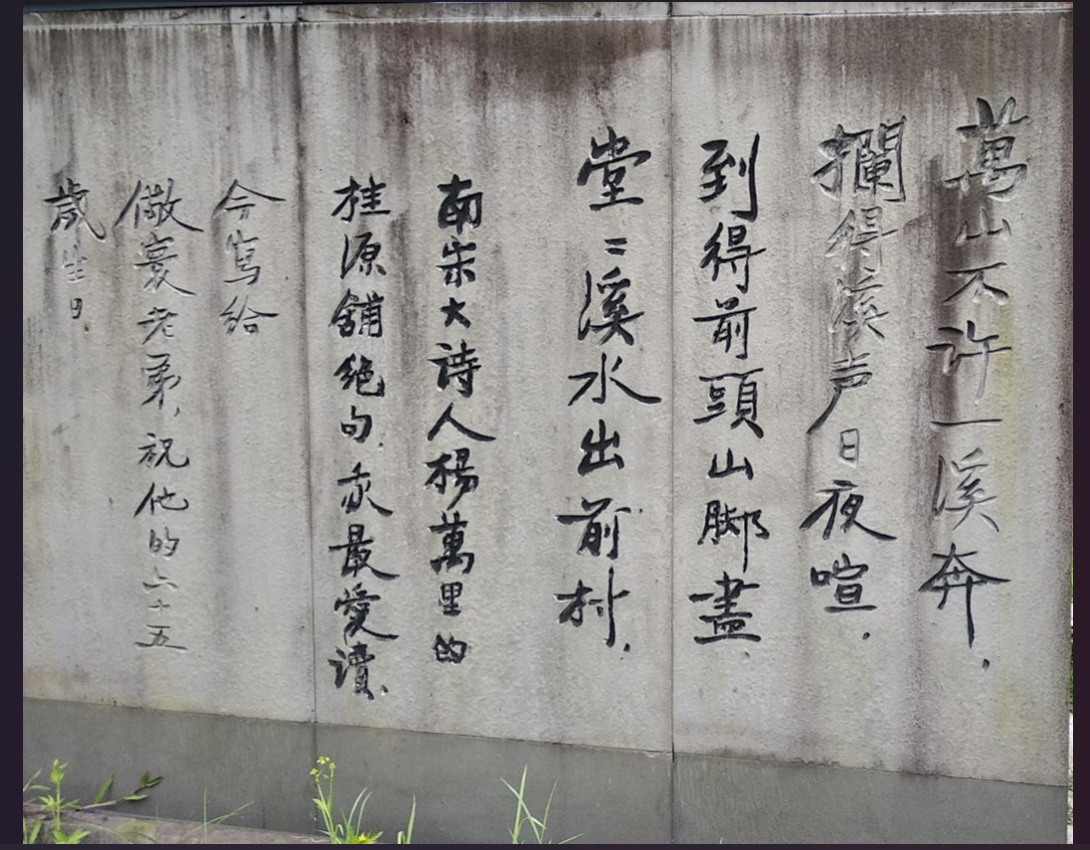 萬山不许一溪奔.
攔得溪声日夜喧.
到得前頭山脚盡.
堂〻溪水出前村.
南宋大诗人楊萬里的
桂源舖绝句.我最愛讀.
今寫给
傲襄老弟,祝他的六十五
歲生日.